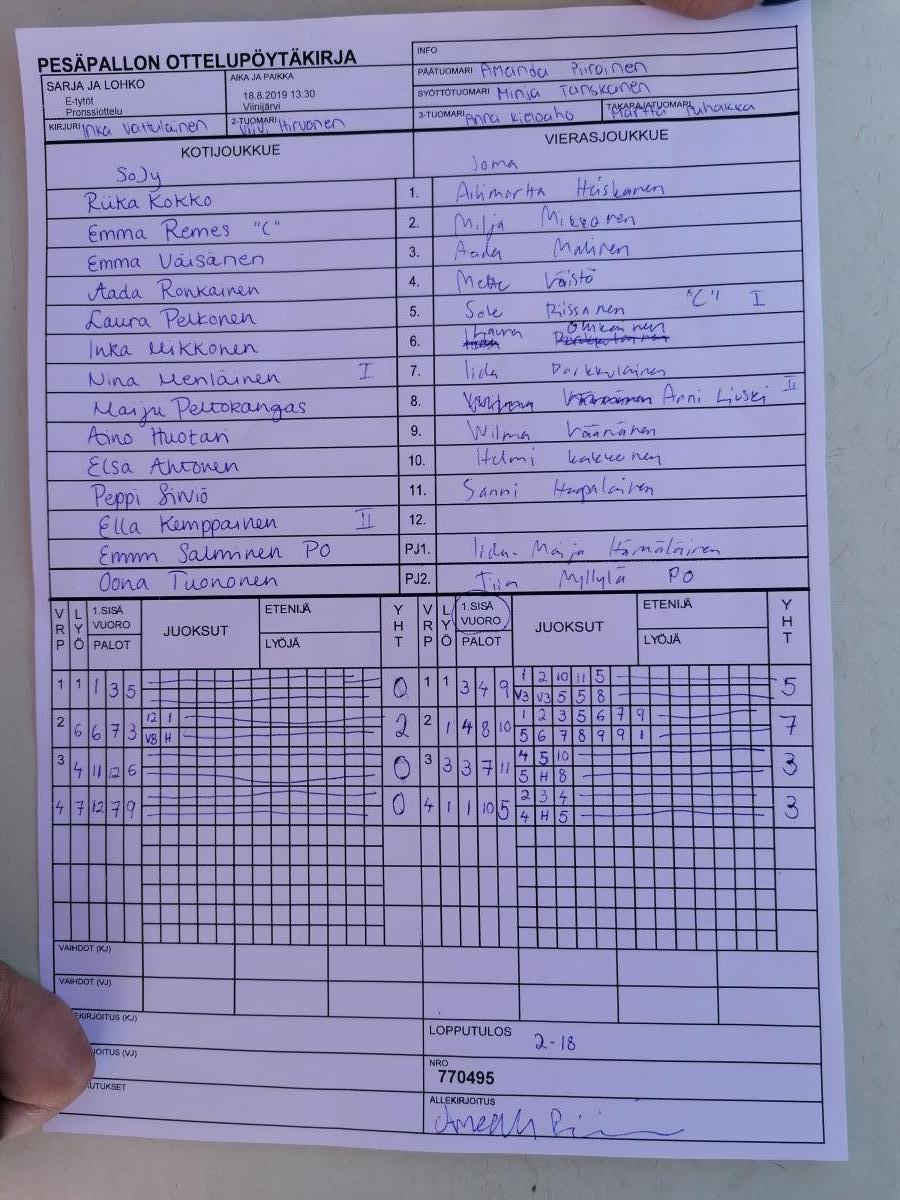 PESÄPALLON OTTELUPÖYTÄKIRJA
INFO
SARJA JA LOHKO
E-tytöt
Pronssiottelu
AIKA JA PAIKKA
18.8.2019 13:30
Viinijärvi
PÄÄTUOMARI Amanda Piiroinen
SYÖTTÖTUOMARI Minja Tanskanen
KIRJURI Inka Vattulainen
2-TUOMARI Viivi Hirvonen
3-TUOMARI Anna Kieloaho
TAKARAJATUOMARI Martta Puhakka
KOTIJOUKKUE
VIERASJOUKKUE
SoJy
Joma
Riika Kokko 1. Ailimartta Heiskanen
Emma Remes "C" 2. Milja Mikkonen
Emma Väisänen 3. Aada Malinen
Aada Ronkainen 4. Mette Väistö
Laura Pelkonen 5. Sole Rissanen "C" I
Inka Mikkonen 6. Laura
Nina Meriläinen I 7. Iida Parkkulainen
Maiju Peltokangas 8. Anni Liuski II
Aino Huotari 9. Wilma Väänänen
Elsa Ahtonen 10. Helmi Kakkonen
Peppi Sirviö 11. Sanni Haapalainen
Ella Kemppainen II 12.
Emmi Salminen PO PJ1. Iida-Maija Hämäläinen
Oona Tuononen PJ2. Tiia Myllylä PO
VRP LYÖ 1.SISÄ VUORO PALOT JUOKSUT ETENIJÄ LYÖJÄ YHT VRP LYÖ 1.SISÄ VUORO PALOT JUOKSUT ETENIJÄ LYÖJÄ YHT
1 1 1 3 5 0 1 1 3 4 9 1 2 10 11 5 5
V3 V3 5 5 8
2 6 6 7 3 12 1 2 2 1 4 8 10 1 2 3 5 6 7 9 7
V8 H 5 6 7 8 9 9 1
3 4 11 12 6 0 3 3 3 7 11 4 5 10 3
5 H 8
4 7 12 7 9 0 4 1 1 10 5 2 3 4 3
4 H 5
VAIHDOT (KJ)
VAIHDOT (VJ)
EKIRJOITUS (KJ)
LOPPUTULOS
2-18
JOITUS (VJ)
NRO
770495
AUTUKSET
ALLEKIRJOITUS